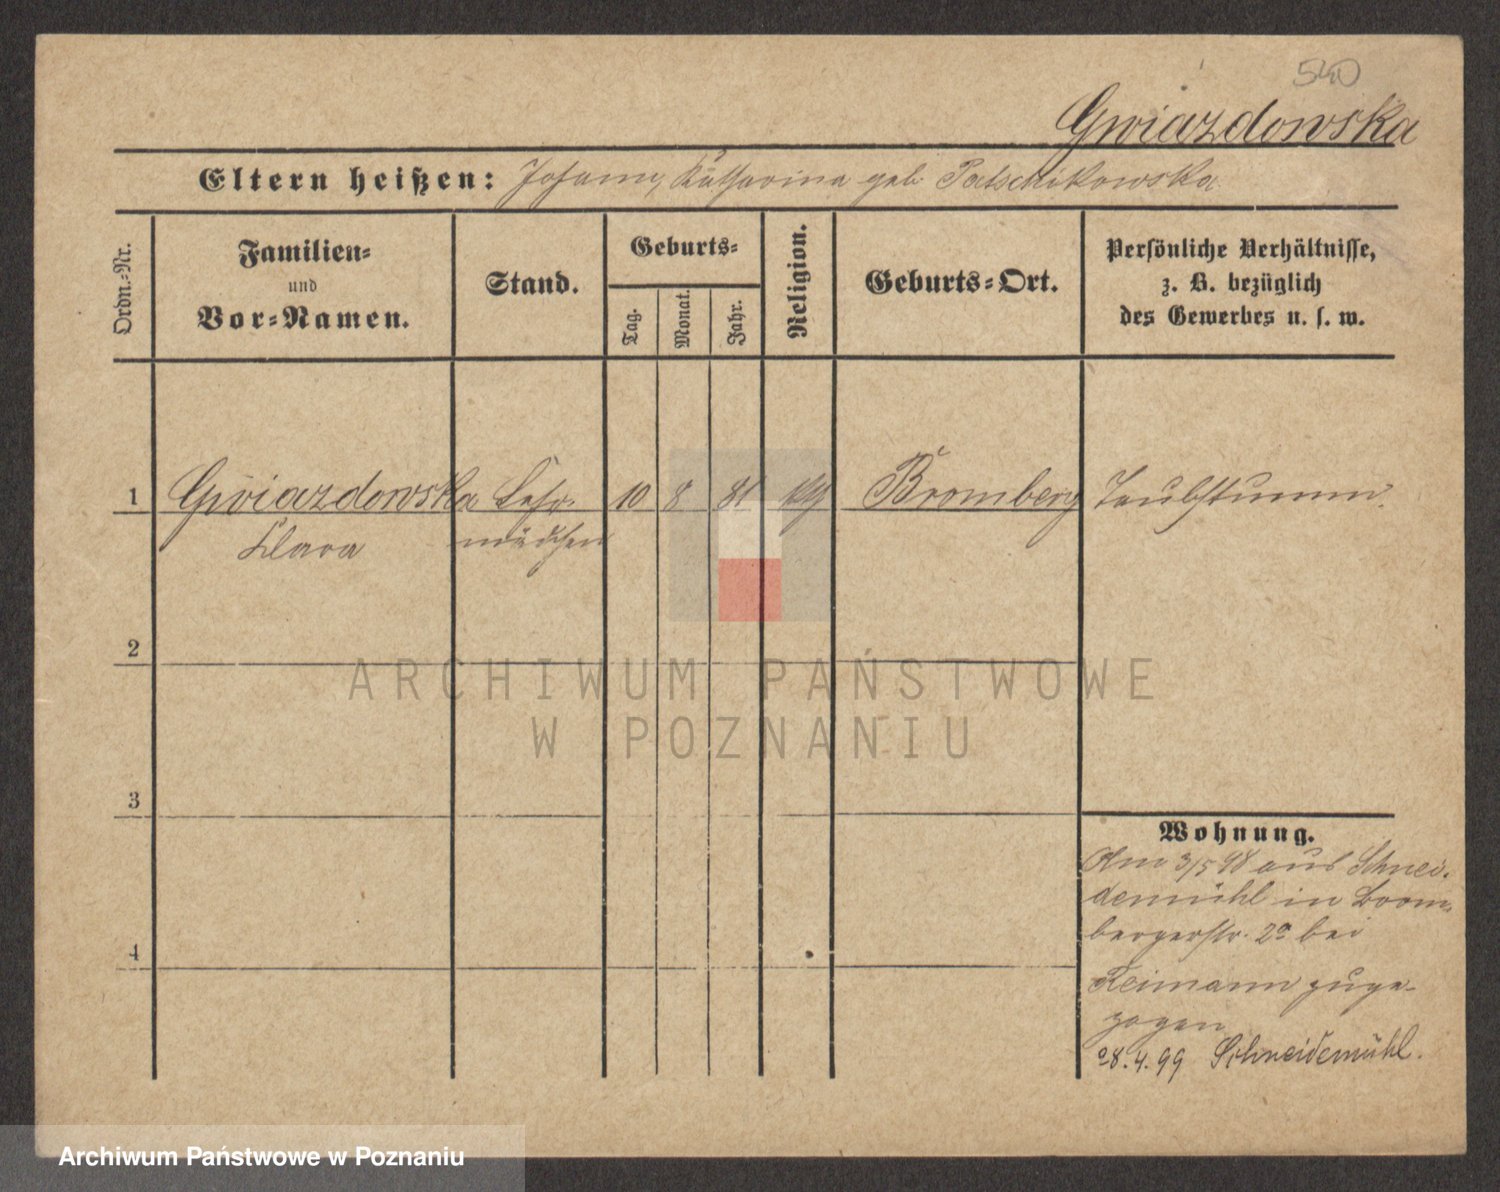 540
Gwiazdowska
Eltern heißen: Johann, Katharina geb. Patschikowska
Ordn.=Nr.
Familien=
und
Vor=Namen.
Stand.
Geburts=
Tag.
Monat.
Jahr.
Religion.
Geburts=Ort.
Persönliche Verhältnisse,
z. B. bezüglich
des Gewerbes u. s. w.
1 Gwiazdowska Lehr- 10 8 81 Bromberg Taubstumm.
Klara mädchen
2
3
4
Wohnung.
Am 3/5 98 aus Schnei-
demühl in Brom-
bergerstr. 2a bei
Reimann zuge-
zogen
28.4.99 Schneidemühl.
ARCHIWUM PAŃSTWOWE
W POZNANIU
Archiwum Państwowe w Poznaniu